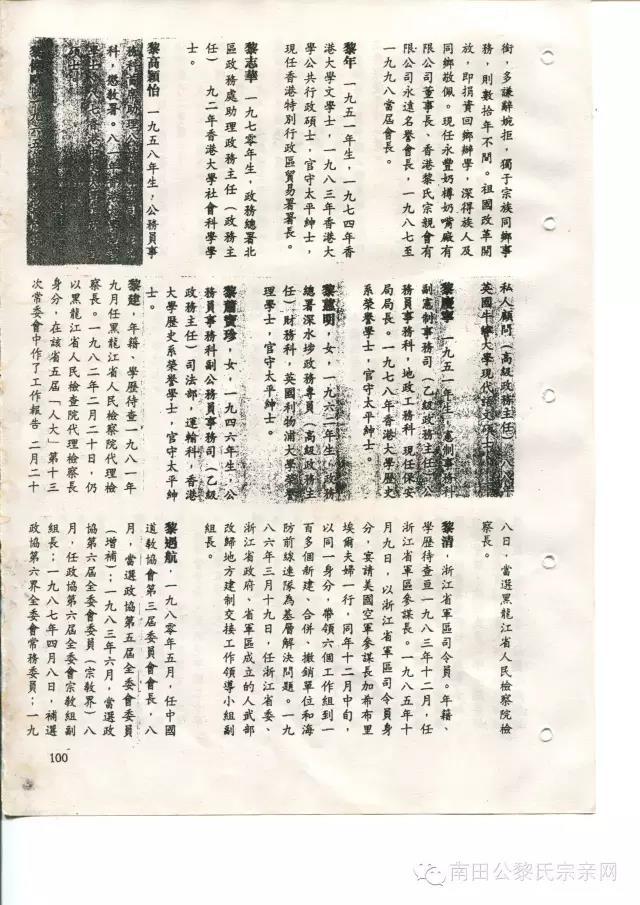 銜，多謙辭婉拒，獨于宗族同鄉事
務，則數拾年不間。祖國改革開
放，即捐資回鄉辦學，深得族人及
同鄉敬佩。現任永豐奶樽奶嘴廠有
限公司董事長、香港黎氏宗親會有
限公司永遠名譽會長，一九八七至
一九九八當屆會長。
黎年，一九五一年生，一九七四年香
港大學文學士，一九八三年香港大
學公共行政碩士，官守太平紳士，
現任香港特別行政區貿易署署長。
黎志華，一九七〇年生，政務總署北
區政務處助理政務主任（政務主
任），九二年香港大學社會科學學
士。
黎高穎怡，一九五八年生，公務員事
私人顧問（高級政務主任）
英國牛津大學現代語文碩士
黎慶寧，一九五一年生，憲制事務科
副憲制事務司（乙級政務主任），公
務員事務科，地政工務科，現任保安
局局長。一九七八年香港大學歷史
系榮譽學士，官守太平紳士。
黎蕙明，女，一九六一年生，政務
總署深水埗政務專員（高級政務主
任）財務科，英國利物浦大學榮譽
理學士，官守太平紳士。
黎蕭寶珍，女，一九四六年生，公
務員事務科副公務員事務司（乙級
政務主任）司法部，運輸科，香港
大學歷史系榮譽學士，官守太平紳
士。
黎建，年籍、學歷待查一九八一年
九月任黑龍江省人民檢察院代理檢
察長。一九八二年二月二十日，仍
以黑龍江省人民檢查院代理檢察長
身分，在該省五屆「人大」第十三
次常委會中作了工作報告，二月二十
八日，當選黑龍江省人民檢察院檢
察長。
黎清，浙江省軍區司令員。年籍、
學歷待查亘一九八三年十二月，任
浙江省軍區參謀長。一九八五年十
月九日，以浙江省軍區司令員身
分，宴請美國空軍參謀長加希布里
埃爾夫婦一行，同年十二月中旬，
以同一身分，帶領六個工作組到一
百多個新建、合併、撤銷單位和海
防前線連隊為基層解決問題。一九
八六年三月十九日，任浙江省委、
浙江省政府、省軍區成立的人武部
改歸地方建制交接工作領導小組副
組長。
黎遇航，一九八〇年五月，任中國
道教協會第三屆委員會會長，八
月，當選政協第五屆全委會委員
（增補）；一九八三年六月，當選政
協第六屆全委會委員（宗教界）八
月，任政協第六屆全委會宗教組副
組長；一九八七年四月八日，補選
政協第六界全委會常務委員；一九
100
南田公黎氏宗亲网